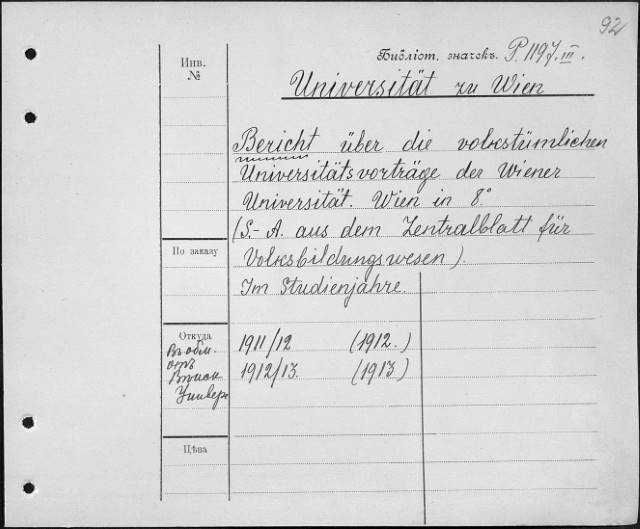 92
Библіот. значекъ. P. 1197.III.
Инв.
№
Universität zu Wien
Bericht über die volkstümlichen
Universitätsvorträge der Wiener
Universität. Wien in 8.°
(S.-A. aus dem Zentralblatt für
По заказу
Volksbildungswesen).
Im Studienjahre.
Откуда
Въ обм.
отъ
Вѣнск
Универ
1911/12 (1912.)
1912/13. (1913)
Цѣна